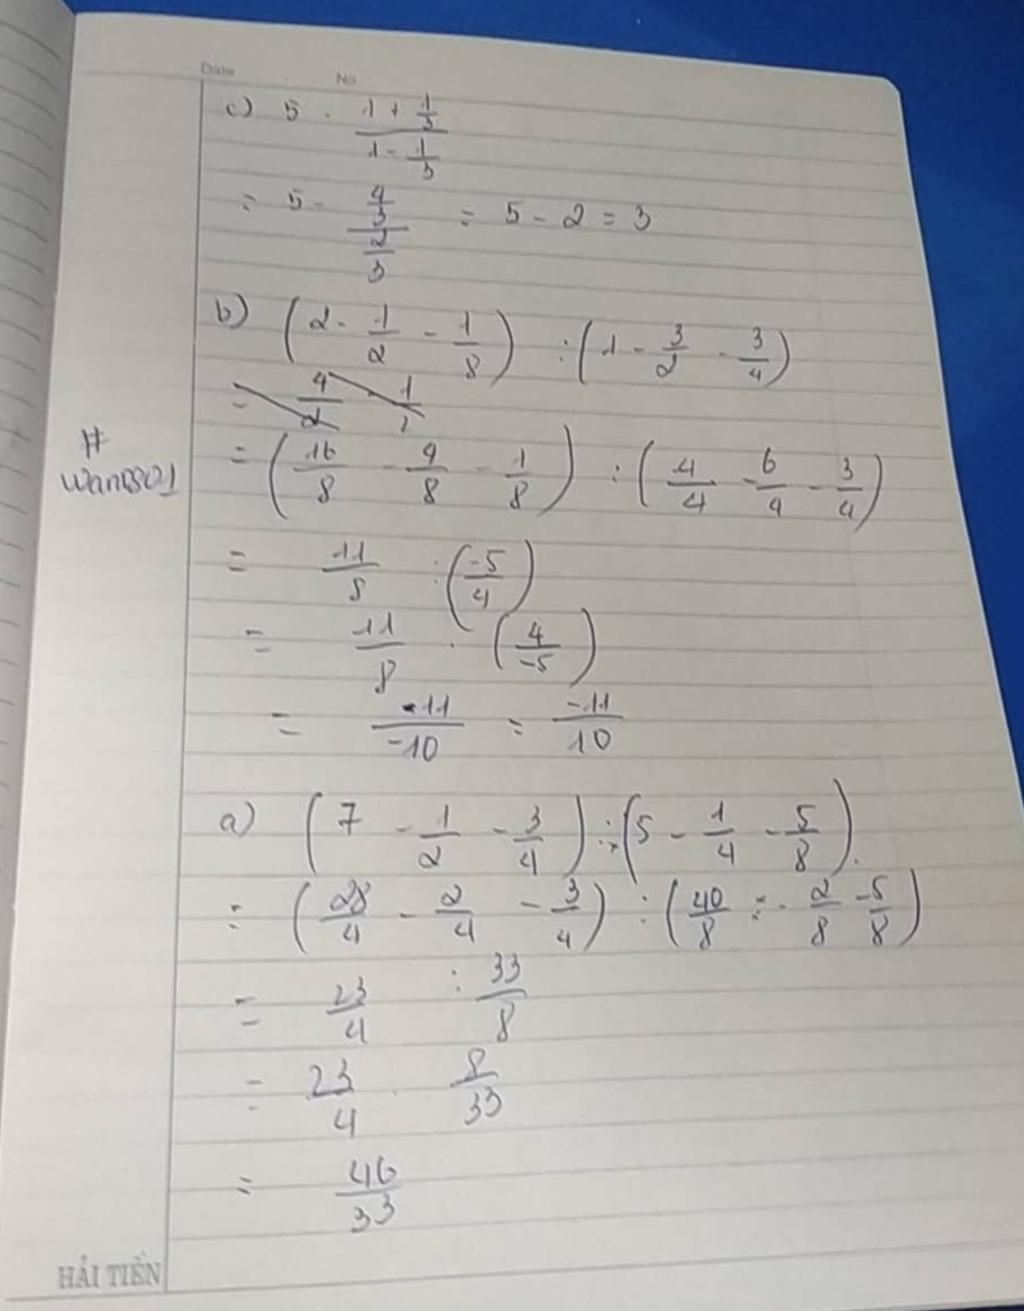 Date No
c) 5 - (1 + 1/3)/(1 - 1/3)
= 5 - (4/3)/(2/3) = 5 - 2 = 3
b) (2 - 1/2 - 1/8) : (1 - 3/2 - 3/4)
= (16/8 - 4/8 - 1/8) : (4/4 - 6/4 - 3/4)
= 11/8 : (-5/4)
= 11/8 . (4/-5)
= -11/-10 = -11/10
a) (7 - 1/2 - 3/4) : (5 - 1/4 - 5/8).
= (28/4 - 2/4 - 3/4) : (40/8 - 2/8 - 5/8)
= 23/4 : 33/8
= 23/4 . 8/33
= 46/33
#
HẢI TIẾN